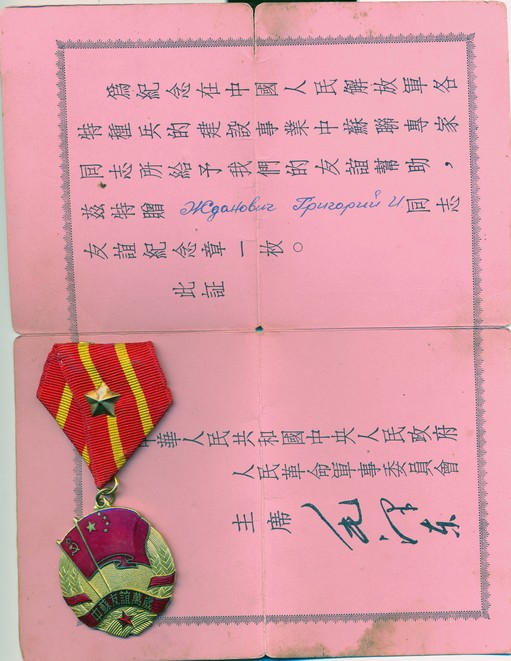 為紀念在中國人民解放軍各
特種兵的建設事業中蘇聯專家
同志所給予我們的友誼幫助，
茲特贈 Жданович Григорий И 同志
友誼紀念章一枚。
此証
中華人民共和國中央人民政府
人民革命軍事委員會
主席 毛澤東
中蘇友誼萬歲